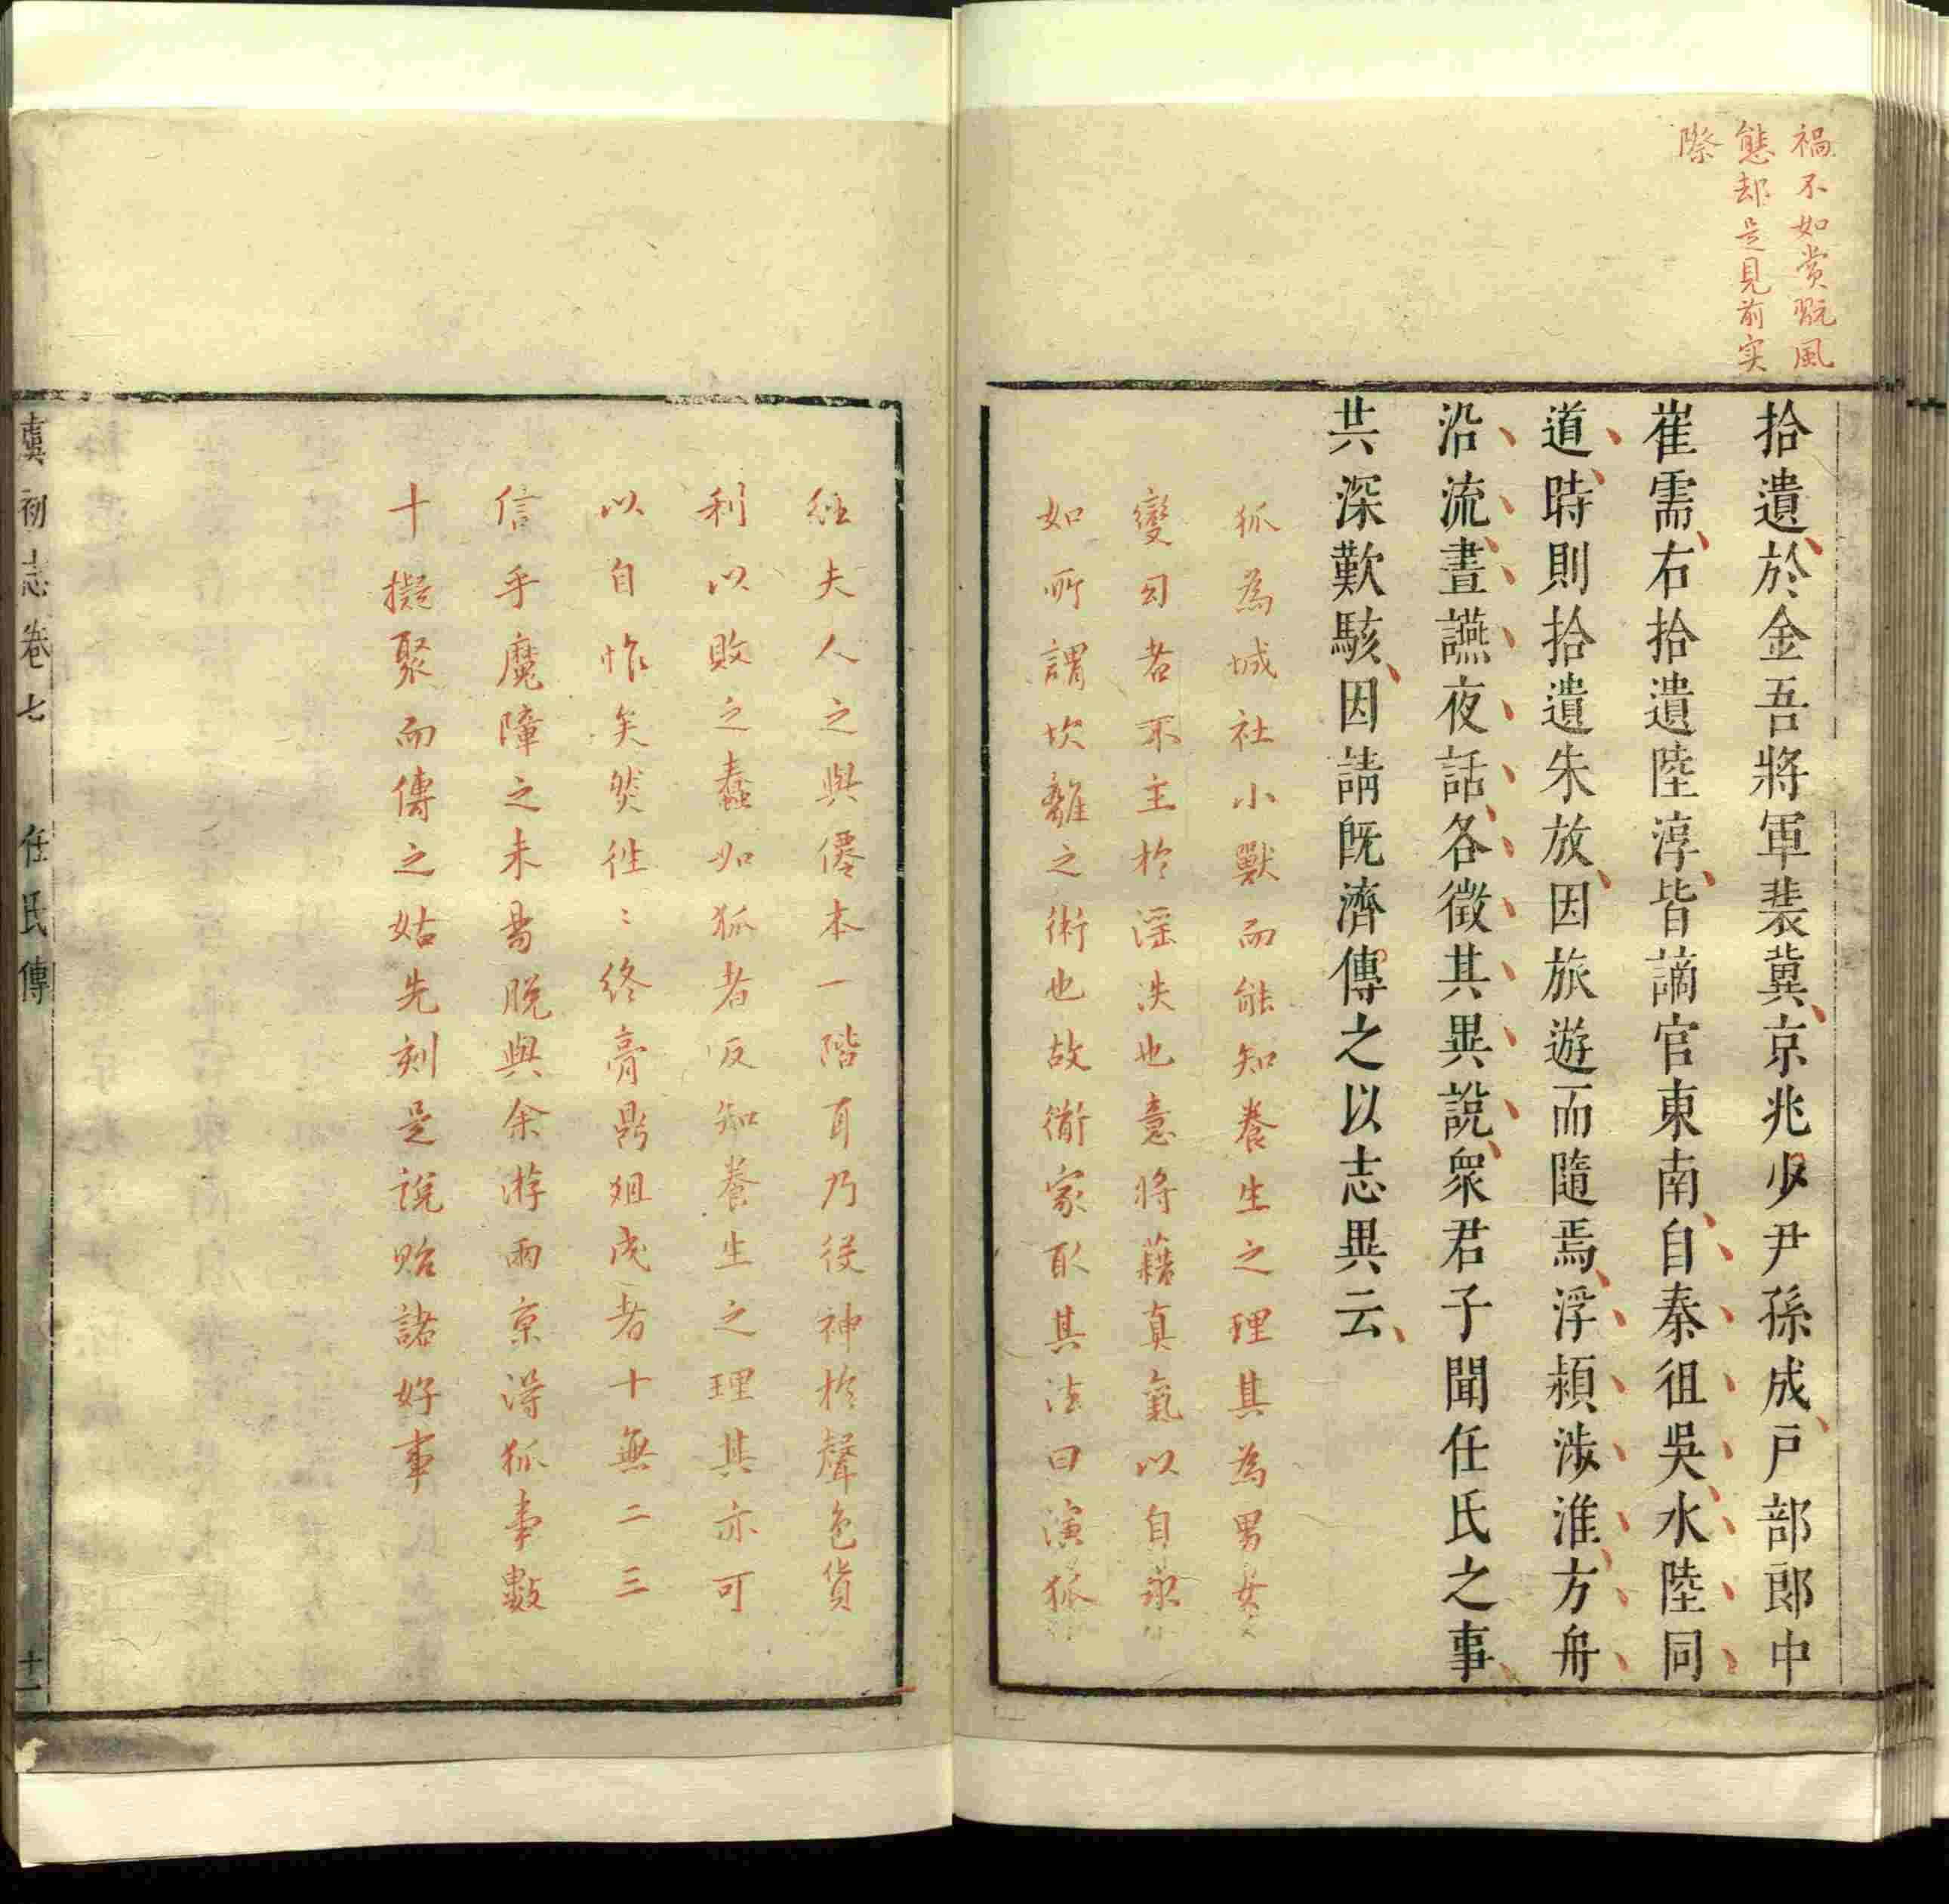 禍不如賞翫風
態却是見前实
際
拾遺於金吾將軍裴冀京兆少尹孫成戸部郎中
崔需右拾遺陸淳皆謫官東南自秦徂吳水陸同
道時則拾遺朱放因旅遊而隨焉浮潁涉淮方舟
沿流晝讌夜話各徵其異說衆君子聞任氏之事
共深歎駭因請旣濟傳之以志異云
狐為城社小獸而能知養生之理其為男女
變幻者不主於滛泆也意将藉真氣以自
如所謂坎離之術也故衛家取其法曰演狐
經夫人之與僊本一階耳乃役神於聲色貨
利以敗之蠢如狐者反知養生之理其亦可
以自怍矣然徃〻終膏鼎俎成者十無二三
信乎魔障之未易脫與余游兩京淂狐事數
十擬聚而傳之姑先刻是說貽諸好事
虞初志卷七 任氏傳 十一